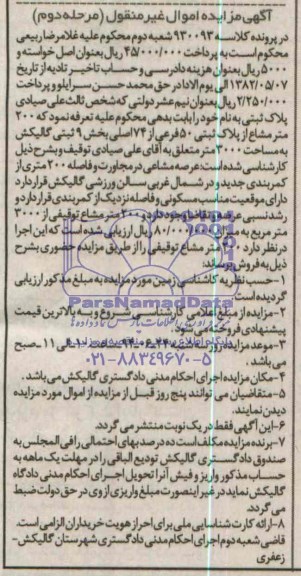 آگهی مزایده اموال غیر منقول (مرحله دوم)
در پرونده کلاسه ۹۳۰۰۹۳ شعبه دوم محکوم علیه غلامرضا ربیعی
محکوم است به پرداخت ۴۵/۰۰۰/۰۰۰ ریال بعنوان اصل خواسته و
۵۰۰۰ ریال بعنوان هزینه دادرسی و حساب تاخیر تادیه از تاریخ
۱۳۸۲/۰۵/۰۷ الی یوم الادا در حق محمد حسن سرایلو و پرداخت
۲/۲۵۰/۰۰۰ ریال بعنوان نیم عشر دولتی که شخص ثالث علی صیادی
پلاک ثبتی به نام خود را بابت بدهی محکوم علیه تعرفه نمود که ۲۰۰
متر مشاع از پلاک ثبتی ۵۰ فرعی از ۷۴ اصلی بخش ۹ ثبتی گالیکش
به مساحت ۳۰۰۰ متر متعلق به آقای علی صیادی توقیف و بشرح ذیل
کارشناسی شده است: عرصه مشاعی در مجاورت و فاصله ۲۰۰ متری از
کمربندی جدید و در شمال غربی سالن ورزشی گالیکش قرار دارد
دارای موقعیت مناسب مسکونی و فاصله نزدیک از کمربندی قرار دارد و
رشد نسبی عرضه و تقاضا وجود دارد و ۲۰۰ متر مشاع توقیفی از ۳۰۰۰
متر مربع به مبلغ ریال ارزیابی شده است که این اجرا
در نظر دارد متر مشاع توقیفی را از طریق مزایده حضوری بشرح
ذیل به فروش برساند:
۱-حسب نظریه کارشناسی زمین مورد مزایده به مبلغ مذکور ارزیابی
گردیده است.
۲-مزایده از مبلغ اعلامی کارشناسی شروع و به بالاترین قیمت
پیشنهادی فروخته می شود.
۳-موعد مزایده روز ساعت الی ۱۱ صبح
می باشد.
۴-مکان مزایده اجرای احکام مدنی دادگستری گالیکش می باشد.
۵-متقاضیان می توانند پنج روز قبل از مزایده از اموال مورد مزایده
دیدن نمایند.
۶-این آگهی فقط در یک نوبت منتشر می گردد.
۷-برنده مزایده مکلف است ده درصد بهای احتمالی را فی المجلس به
صندوق دادگستری گالیکش تودیع الباقی را در مهلت یک ماهه به
حساب مذکور واریز و فیش آنرا تحویل اجرای احکام مدنی دادگاه
گالیکش نماید در غیر اینصورت مبلغ واریزی از وی در حق دولت ضبط
می گردد.
۸-ارائه کارت شناسایی ملی برای احراز هویت خریداران الزامی است.
قاضی شعبه دوم اجرای احکام مدنی دادگستری شهرستان گالیکش-
زعفری
ParsNamadData
۰۲۱-۸۸۳۴۹۶۷۰-۵